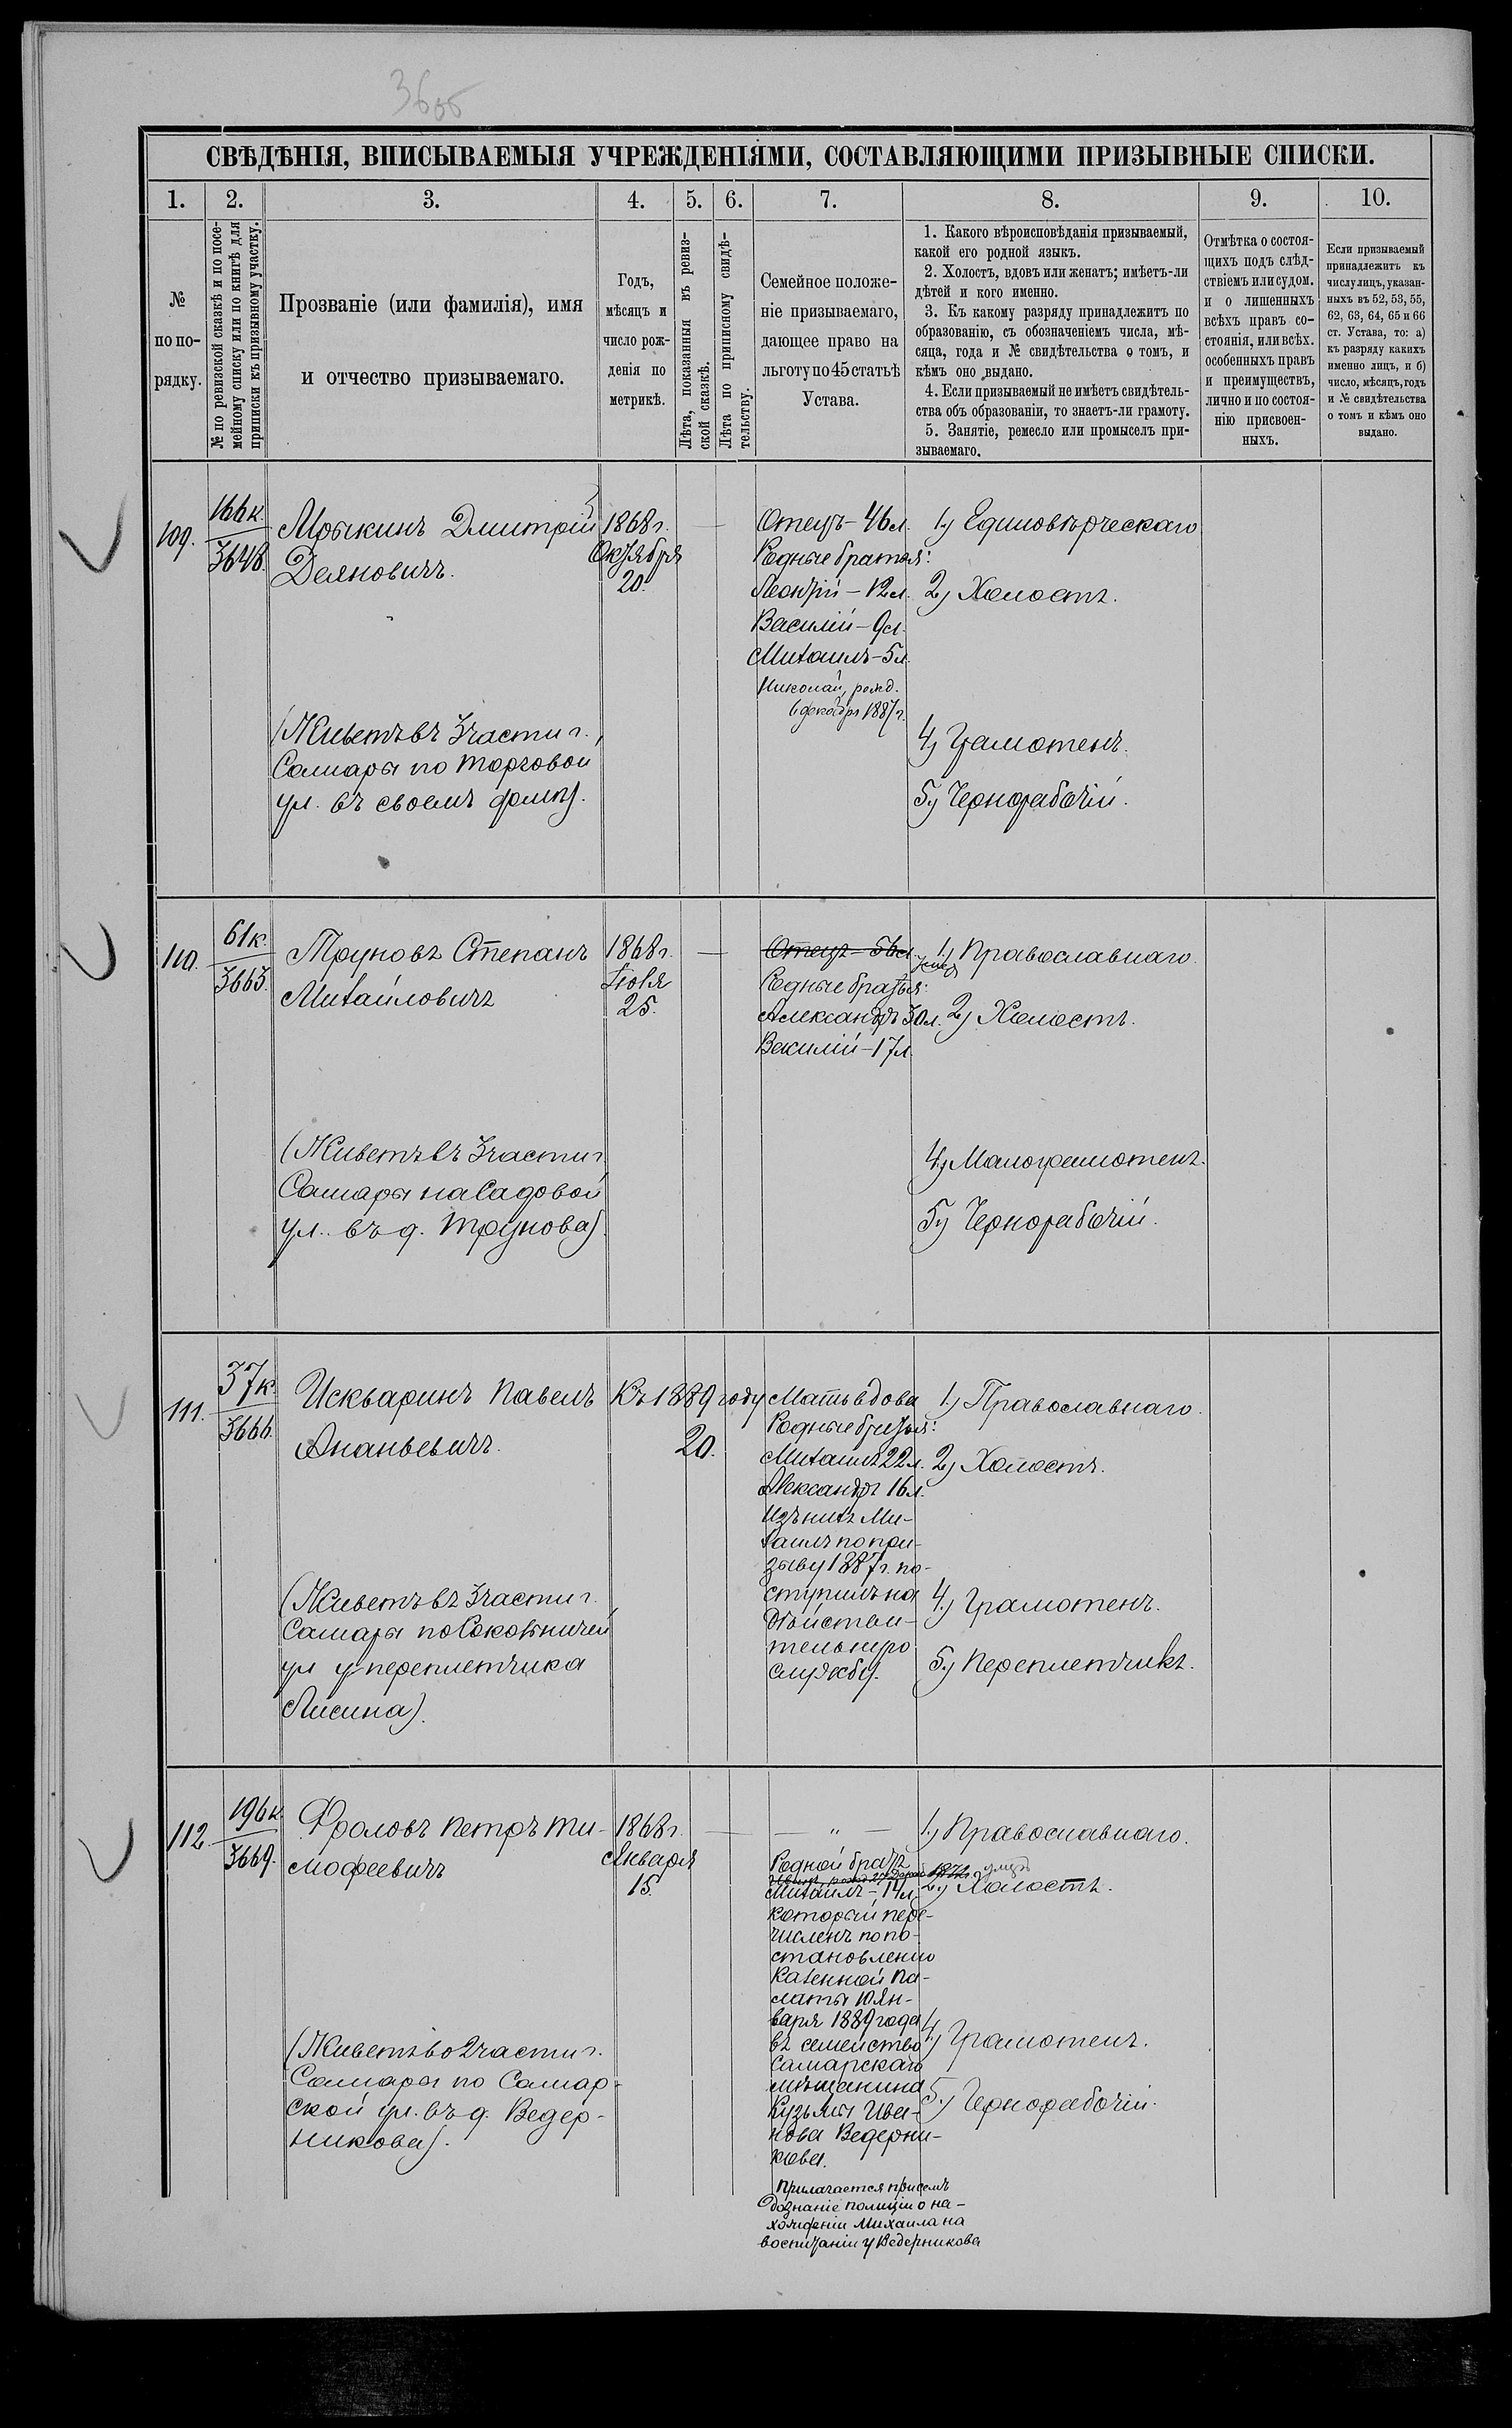 СВѢДѢНІЯ, ВПИСЫВАЕМЫЯ УЧРЕЖДЕНІЯМИ, СОСТАВЛЯЮЩИМИ ПРИЗЫВНЫЕ СПИСКИ.
1.
2.
3.
4.
5.
6.
7.
8.
9.
10.
№
по по-
рядку.
№ по ревизской сказкѣ и по посе-
мейному списку или по книгѣ для
приписки къ призывному участку.
Прозваніе (или фамилія), имя
и отчество призываемаго.
Годъ,
мѣсяцъ и
число рож-
денія по
метрикѣ.
Лѣта, показанныя въ ревиз-
ской сказкѣ.
Лѣта по приписному свидѣ-
тельству.
Семейное положе-
ніе призываемаго,
дающее право на
льготу по 45 статьѣ
Устава.
1. Какого вѣроисповѣданія призываемый,
какой его родной языкъ.
2. Холостъ, вдовъ или женатъ; имѣетъ-ли
дѣтей и кого именно.
3. Къ какому разряду принадлежитъ по
образованію, съ обозначеніемъ числа, мѣ-
сяца, года и № свидѣтельства о томъ, и
кѣмъ оно выдано.
4. Если призываемый не имѣетъ свидѣтель-
ства объ образованіи, то знаетъ-ли грамоту.
5. Занятіе, ремесло или промыселъ при-
зываемаго.
Отмѣтка о состоя-
щихъ подъ слѣд-
ствіемъ или судом.
и о лишенныхъ
всѣхъ правъ со-
стоянія, или всѣх.
особенныхъ правъ
и преимуществъ,
лично и по состоя-
нію присвоен-
ныхъ.
Если призываемый
принадлежитъ къ
числу лицъ, указан-
ныхъ въ 52, 53, 55,
62, 63, 64, 65 и 66
ст. Устава, то: а)
къ разряду какихъ
именно лицъ, и б)
число, мѣсяцъ, годъ
и № свидѣтельства
о томъ и кѣмъ оно
выдано.
109.
166 к.
3648.
Дмитрій
1868 г.
Октября
20.
(Живетъ въ 3 части г.
Самары по Торговой
ул. въ своемъ домѣ).
Отецъ - 46 л.
Родные братья:
12 л.
Василій - 9 л.
Михаилъ - 5 л.
Николай, рожд.
6 декабря 1887 г.
1.) Единовѣрческаго
2.) Холостъ.
4.) Грамотенъ.
5.) Чернорабочій.
110.
61 к.
3663.
Труновъ Степанъ
Михайловичъ
1868 г.
Іюля
25.
(Живетъ въ 3 части г.
Самары на Садовой
ул. въ д. Трунова).
Отецъ - 56 л.
умеръ
Родные братья:
Александръ 30 л.
Василій - 17 л.
1.) Православнаго.
2.) Холостъ.
4.) Малограмотенъ.
5.) Чернорабочій.
111.
37 к.
3666.
Искваринъ Павелъ
Ананьевичъ.
Къ 1889 году
20.
(Живетъ въ 3 части г.
Самары по Сокольничей
ул у переплетчика
Лисина).
Мать вдова
Родные братья:
Михаилъ 22 л.
Александръ 16 л.
Изъ нихъ Ми-
хаилъ по при-
зыву 1887 г. по-
ступилъ на
дѣйстви-
тельную
службу.
1.) Православнаго.
2.) Холостъ.
4.) Грамотенъ.
5.) Переплетчикъ.
112.
196 к.
3669.
Фроловъ Петръ Ти-
мофеевичъ
1868 г.
Января
15.
(Живетъ во 2 части г.
Самары по Самар-
ской ул. въ д. Ведер-
никова).
— „ —
Родной братъ
умеръ
Михаилъ - 14 л.
который пере-
численъ по по-
становленію
Казенной Па-
латы 10 Ян-
варя 1889 года
въ семейство
Самарскаго
мѣщанина
Кузьмы Ива-
нова Ведерни-
кова.
Прилагается при семъ
дознаніе полиціи о на-
хожденіи Михаила на
воспитаніи у Ведерникова
1.) Православнаго.
2.) Холостъ.
4.) Грамотенъ.
5.) Чернорабочій.